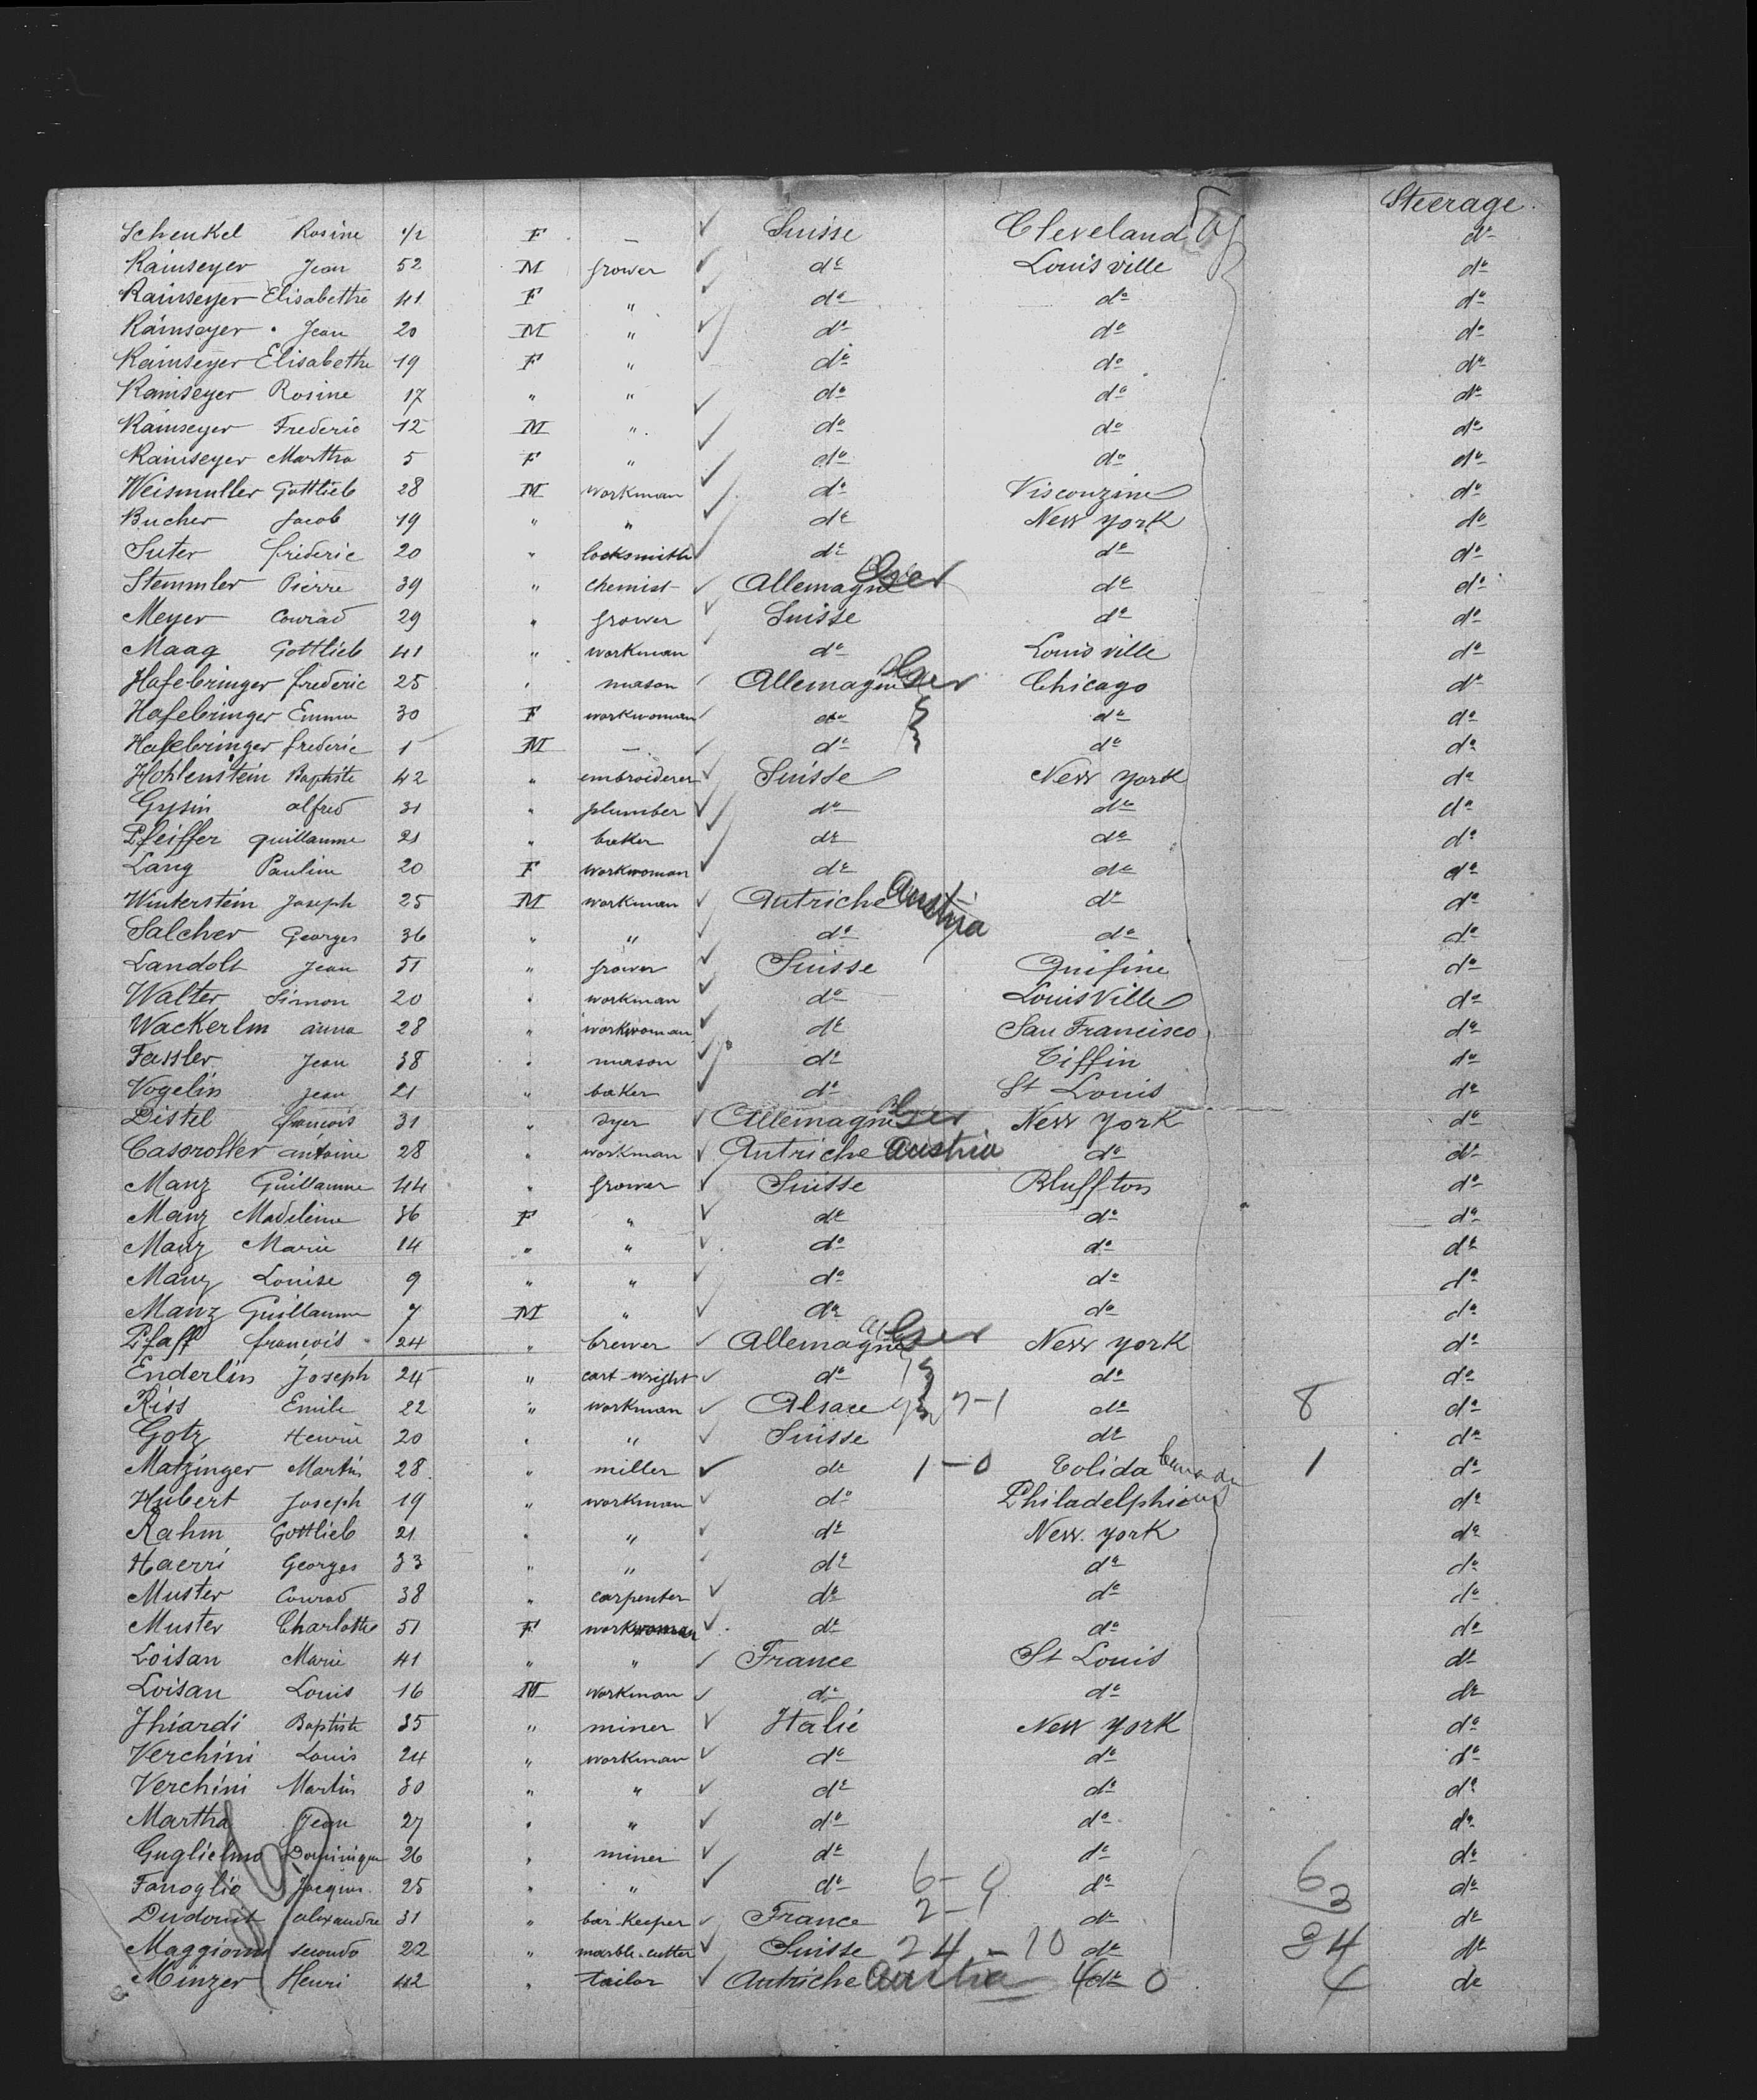 Steerage.
Schenkel Rosine 1/2 F — ✓ Suisse Cleveland do
Ramseyer Jean 52 M grower ✓ do Louisville do
Ramseyer Elisabethe 41 F " ✓ do do do
Ramseyer Jean 20 M " ✓ do do do
Ramseyer Elisabethe 19 F " ✓ do do do
Ramseyer Rosine 17 " " ✓ do do do
Ramseyer Frederic 12 M " ✓ do do do
Ramseyer Martha 5 F " ✓ do do do
Weismuller Gottlieb 28 M workman ✓ do Visconzine do
Bucher Jacob 19 " " ✓ do New York do
Suter frederic 20 " locksmith ✓ do do do
Stemmler Pierre 39 " chemist ✓ Allemagne Ger do do
Meyer Conrad 29 " grower ✓ Suisse do do
Maag Gottlieb 41 " workman ✓ do Louisville do
Hafebringer frederic 25 " mason ✓ Allemagne Ger Chicago do
Hafebringer Emma 30 F workwoman ✓ do do do
Hafebringer frederic 1 M — ✓ do do do
Hohlenstein Baptiste 42 " embroiderer ✓ Suisse New York do
Gysin alfred 31 " plumber ✓ do do do
Pfeiffer guillaume 21 " baker ✓ do do do
Lang Pauline 20 F workwoman ✓ do do do
Winterstein Joseph 25 M workman ✓ Autriche Austria do do
Salcher Georges 36 " " ✓ do do do
Landolt Jean 51 " grower ✓ Suisse Quifine do
Walter Simon 20 " workman ✓ do LouisVille do
Wackerlin anna 28 " workwoman ✓ do San Francisco do
Fassler Jean 38 " mason ✓ do Tiffin do
Vogelin jean 21 " baker ✓ do St Louis do
Distel francois 31 " dyer ✓ Allemagne Ger New York do
Casorotter antoine 28 " workman ✓ Autriche Austria do do
Manz Guillaume 44 " grower ✓ Suisse Bluffton do
Manz Madeleine 36 F " ✓ do do do
Manz Marie 14 " " ✓ do do do
Manz Louise 9 " " ✓ do do do
Manz Guillaume 7 M " ✓ do do do
Pfaff francois 24 " brewer ✓ Allemagne Ger New York do
Enderlin Joseph 24 " cart-wright ✓ do do do
Riss Emile 22 " workman ✓ Alsace 7-1 do 8 do
Gotz Henri 20 " " ✓ Suisse do do
Matzinger Martin 28 " miller ✓ do 1-0 Tolida Canada 1 do
Hubert Joseph 19 " workman ✓ do Philadelphie do
Rahm Gottlieb 21 " " ✓ do New York do
Haerri Georges 33 " " ✓ do do do
Muster Conrad 38 " carpenter ✓ do do do
Muster Charlotte 51 F workwoman ✓ do do do
Loisan Marie 41 " " ✓ France St Louis do
Loisan Louis 16 M workman ✓ do do do
Jhiardi Baptiste 35 " miner ✓ Italie New York do
Verchini Louis 24 " workman ✓ do do do
Verchini Martin 30 " " ✓ do do do
Martha Jean 27 " " ✓ do do do
Guglielmo Dominique 26 " miner ✓ do do do
Fanoglio Jacques 25 " " ✓ do 6- do 6 do
Dudouit alexandre 31 " bar-Keeper ✓ France 2-1 do 3 do
Maggioni secondo 22 " marble-cutter ✓ Suisse 24-10 do 34 do
Minzer Henri 42 " tailor ✓ Autriche Austria 4 do 0 4 do